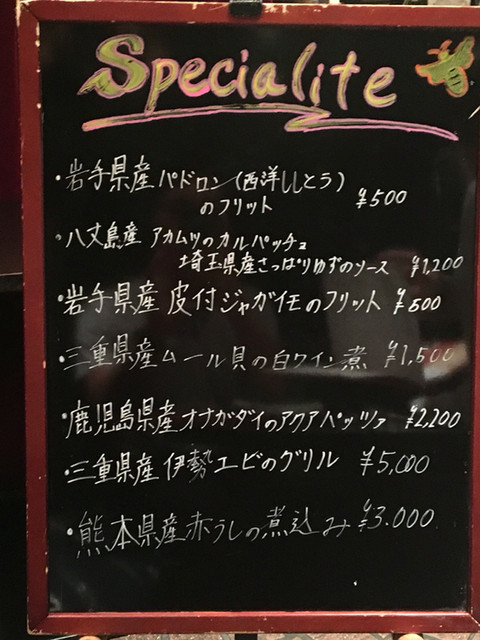 Specialite
・岩手県産パドロン(西洋ししとう)
のフリット ¥500
・八丈島産 アカムツのカルパッチョ
埼玉県産さっぱりゆずのソース ¥1,200
・岩手県産 皮付ジャガイモのフリット ¥500
・三重県産ムール貝の白ワイン煮 ¥1,500
・鹿児島県産オナガダイのアクアパッツァ ¥2,200
・三重県産 伊勢エビのグリル ¥5,000
・熊本県産赤うしの煮込み ¥3.000